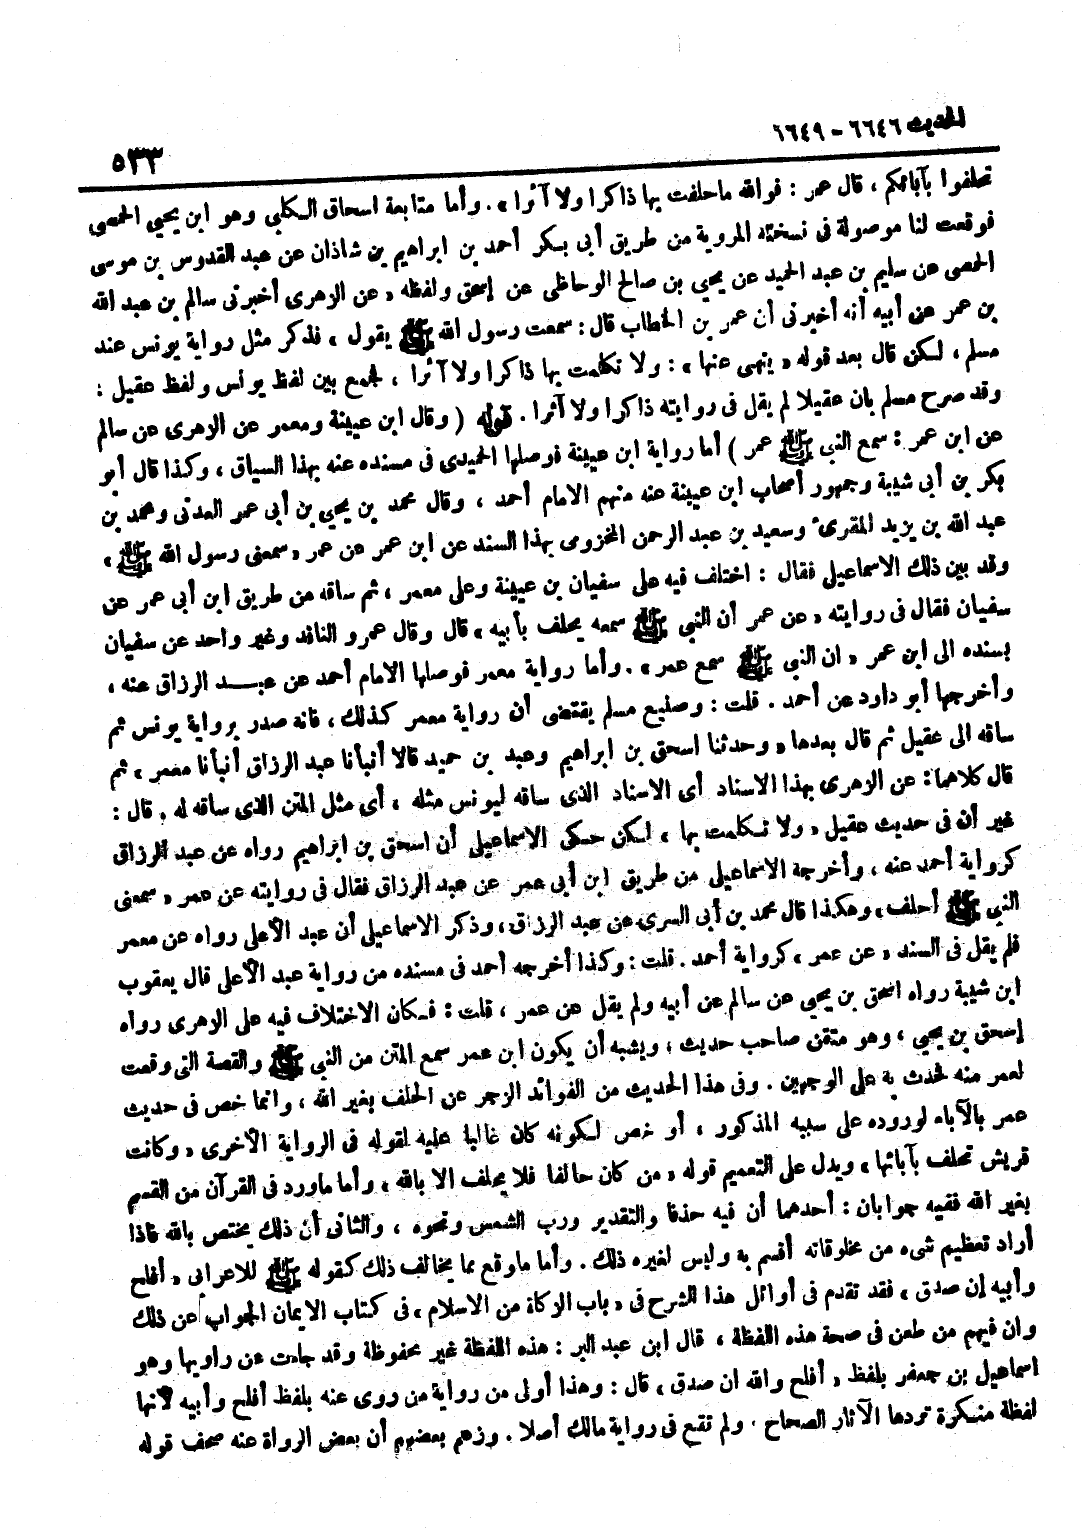 الحديث ٦٦٤٦ - ٦٦٤٩
٥٣٣
تحلفوا بآبائكم ، قال عمر : فوالله ماحلفت بها ذاكرا ولا آثرا » . وأما متابعة اسحاق الكلبي وهو ابن يحيي الحمصي
فوقعت لنا موصولة فى نسخته المروية من طريق أبى بكر أحمد بن ابراهيم بن شاذان عن عبد القدوس بن موسى
الحمصى عن سليم بن عبد الحميد عن يحيي بن صالح الوحاظى عن إسحق ولفظه « عن الزهرى أخبرنى سالم بن عبد الله
بن عمر عن أبيه أنه أخبرنى أن عمر بن الخطاب قال : سمعت رسول الله ﷺ يقول ، فذكر مثل رواية يونس عند
مسلم ، لكن قال بعد قوله « ينهى عنها » : ولا تكلمت بها ذاكرا ولا آثرا ، لجمع بين لفظ يونس ولفظ عقيل :
وقد صرح مسلم بان عقيلا لم يقل فى روايته ذاكرا ولا آثرا . قوله ( وقال ابن عيينة ومعمر عن الزهرى عن سالم
عن ابن عمر : سمع النبى ﷺ عمر ) أما رواية ابن عيينة فوصلها الحميدى فى مسنده عنه بهذا السياق ، وكذا قال أبو
بكر بن أبى شيبة وجمهور أصحاب ابن عيينة عنه منهم الامام أحمد ، وقال محمد بن يحيي بن أبى عمر العدنى ومحمد بن
عبد الله بن يزيد المقرىء وسعيد بن عبد الرحمن المخزومى بهذا السند عن ابن عمر عن عمر « سمعنى رسول الله ﷺ »
وقد بين ذلك الاسماعيلى فقال : اختلف فيه على سفيان بن عيينة وعلى معمر ، ثم ساقه من طريق ابن أبى عمر عن
سفيان فقال فى روايته « عن عمر أن النبى ﷺ سمعه يحلف بأبيه » قال وقال عمرو الناقد وغير واحد عن سفيان
بسنده الى ابن عمر « ان النبى ﷺ سمع عمر » . وأما رواية معمر فوصلها الامام أحمد عن عبـد الرزاق عنه ،
وأخرجها أبو داود عن أحمد . قلت : وصنيع مسلم يقتضى أن رواية معمر كذلك ، فانه صدر برواية يونس ثم
ساقه الى عقيل ثم قال بعدها « وحدثنا اسحق بن ابراهيم وعبد بن حميد قالا أنبأنا عبد الرزاق أنبأنا معمر » ثم
قال كلاهما : عن الزهرى بهذا الاسناد أى الاسناد الذى ساقه ليونس مثله ، أى مثل المتن الذى ساقه له . قال :
غير أن فى حديث عقيل « ولا تكلمت بها ، لكن حكى الاسماعيلى أن اسحق بن ابراهيم رواه عن عبد الرزاق
كرواية أحمد عنه ، وأخرجة الاسماعيلى من طريق ابن أبى عمر عن عبد الرزاق فقال فى روايته عن عمر « سمعنى
النبى ﷺ أحلف » وهكذا قال محمد بن أبى السرى عن عبد الرزاق ، وذكر الاسماعيلى أن عبد الأعلى رواه عن معمر
فلم يقل فى السند « عن عمر » كرواية أحمد . قلت : وكذا أخرجه أحمد فى مسنده من رواية عبد الأعلى قال يعقوب
ابن شيبة رواه اسحق بن يحيي عن سالم عن أبيه ولم يقل عن عمر ، قلت : فكان الاختلاف فيه على الزهرى رواه
إسحق بن يحيي ، وهو متقن صاحب حديث ، ويشبه أن يكون ابن عمر سمع المتن من النبى ﷺ والقصة التى وقعت
لعمر منه لحدث به على الوجهين . وفى هذا الحديث من الفوائد الزجر عن الحلف بغير الله ، وانما خص فى حديث
عمر بالآباء لوروده على سببه المذكور ، أو خص لكونه كان غالبا عليه لقوله فى الرواية الأخرى « وكانت
قريش تحلف بآبائها » ويدل على التعميم قوله « من كان حالفا فلا يحلف الا بالله » وأما ماورد فى القرآن من القسم
بغير الله ففيه جوابان : أحدهما أن فيه حذفا والتقدير ورب الشمس ونحوه ، والثانى أن ذلك يختص بالله فاذا
أراد تعظيم شىء من مخلوقاته أقسم به وليس لغيره ذلك . وأما ماوقع مما يخالف ذلك كقوله ﷺ للاعرابى « أفلح
وأبيه إن صدق » فقد تقدم فى أوائل هذا الشرح فى « باب الزكاة من الاسلام » فى كتاب الايمان الجواب عن ذلك
وان فيهم من طعن فى صحة هذه اللفظة ، قال ابن عبد البر : هذه اللفظة غير محفوظة وقد جاءت عن راويها وهو
اسماعيل بن جعفر بلفظ « أفلح والله ان صدق » قال : وهذا أولى من رواية من روى عنه بلفظ أفلح وأبيه لأنها
لفظة منكرة تردها الآثار الصحاح . ولم تقع فى رواية مالك أصلا . وزعم بعضهم أن بعض الرواة عنه صحف قوله